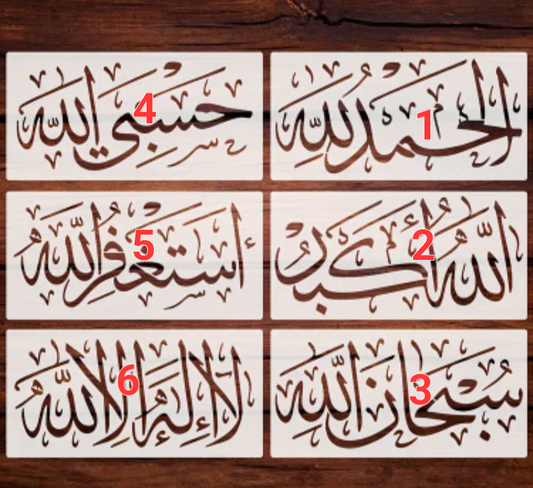 الحمد لله 1
الله أكبر 2
سبحان الله 3
حسبي الله 4
أستغفر الله 5
لا إله إلا الله 6